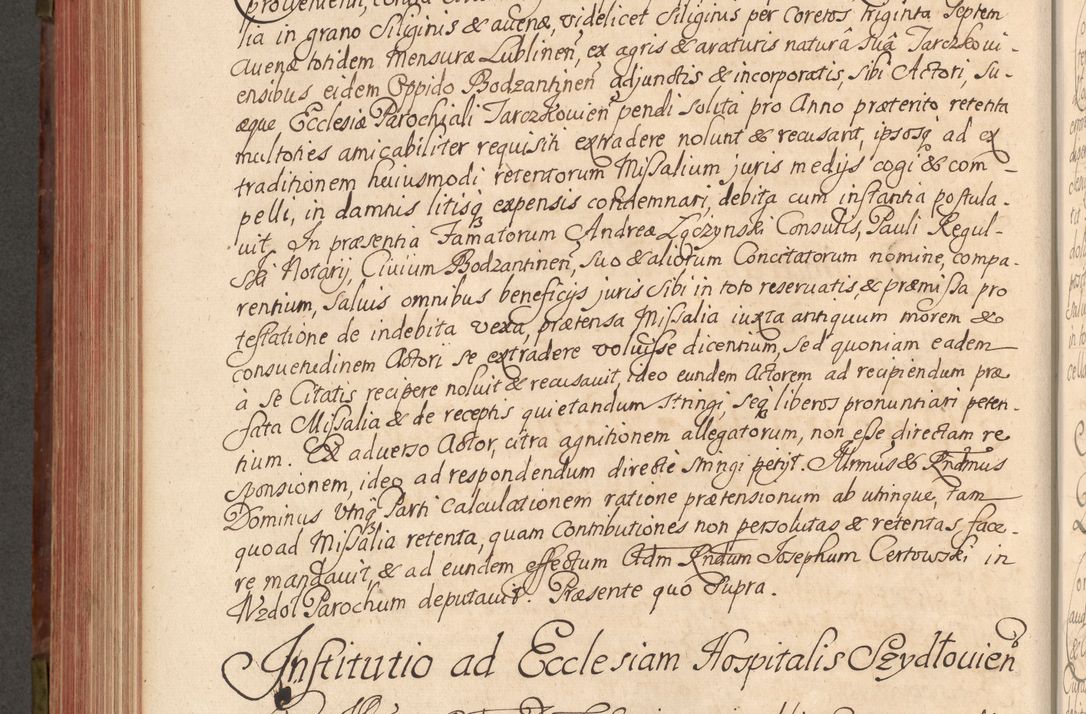 lia in grano Siliginis & auenæ, videlicet Siliginis per Coretos triginta Septem
Auenæ totidem mensuræ Lublinen, ex agris & araturis naturâ Suâ Tarczkoui-
ensibus eidem Oppido Bodzantinen adjunctis & incorporatis, Sibi Actori, Su-
æque Ecclesiæ Parochiali Tarczkouien pendi Solita pro Anno præterito retenta
multoties amicabiliter requisiti extradere nolunt & recusant, ipsosq ad ex
traditionem huiusmodi retentorum Missalium juris medijs cogi & com-
pelli, in damnis litisq expensis condemnari, debita cum instantia postula-
uit. In præsentia Famatorum Andreæ Zgczynski Consulis, Pauli Regul-
ski Notarij, Ciuium Bodzantinen, Suo & aliorum Concitatorum nomine, compa-
rentium, Saluis omnibus beneficijs juris Sibi in toto reseruatis, & præmissa pro
testatione de indebita vexa, prætensa Missalia iuxta antiquum morem &
consuetudinem Actori Se extradere voluisse dicentium, Sed quoniam eadem
à Se Citatis recipere noluit & recusauit, ideo eundem Actorem ad recipiendum præ
fata Missalia & de receptis quietandum Stringi, Seq liberos pronuntiari peten-
tium. Ex aduerso Actor, citra agnitionem allegatorum, non esse directam re
sponsionem, ideo ad respondendum directè stringi petijt. Illrmus & Rndmus
Dominus vtriq Parti Calculationem ratione prætensionum ab utrinque, tam
quoad Missalia retenta, quam Contributiones non persolutas & retentas, face-
re mandauit, & ad eundem effectum Adm Rndum Josephum Certowski in
Wzdol Parochum deputauit. Præsente quo Supra.
Institutio ad Ecclesiam Hospitalis Szydłouien